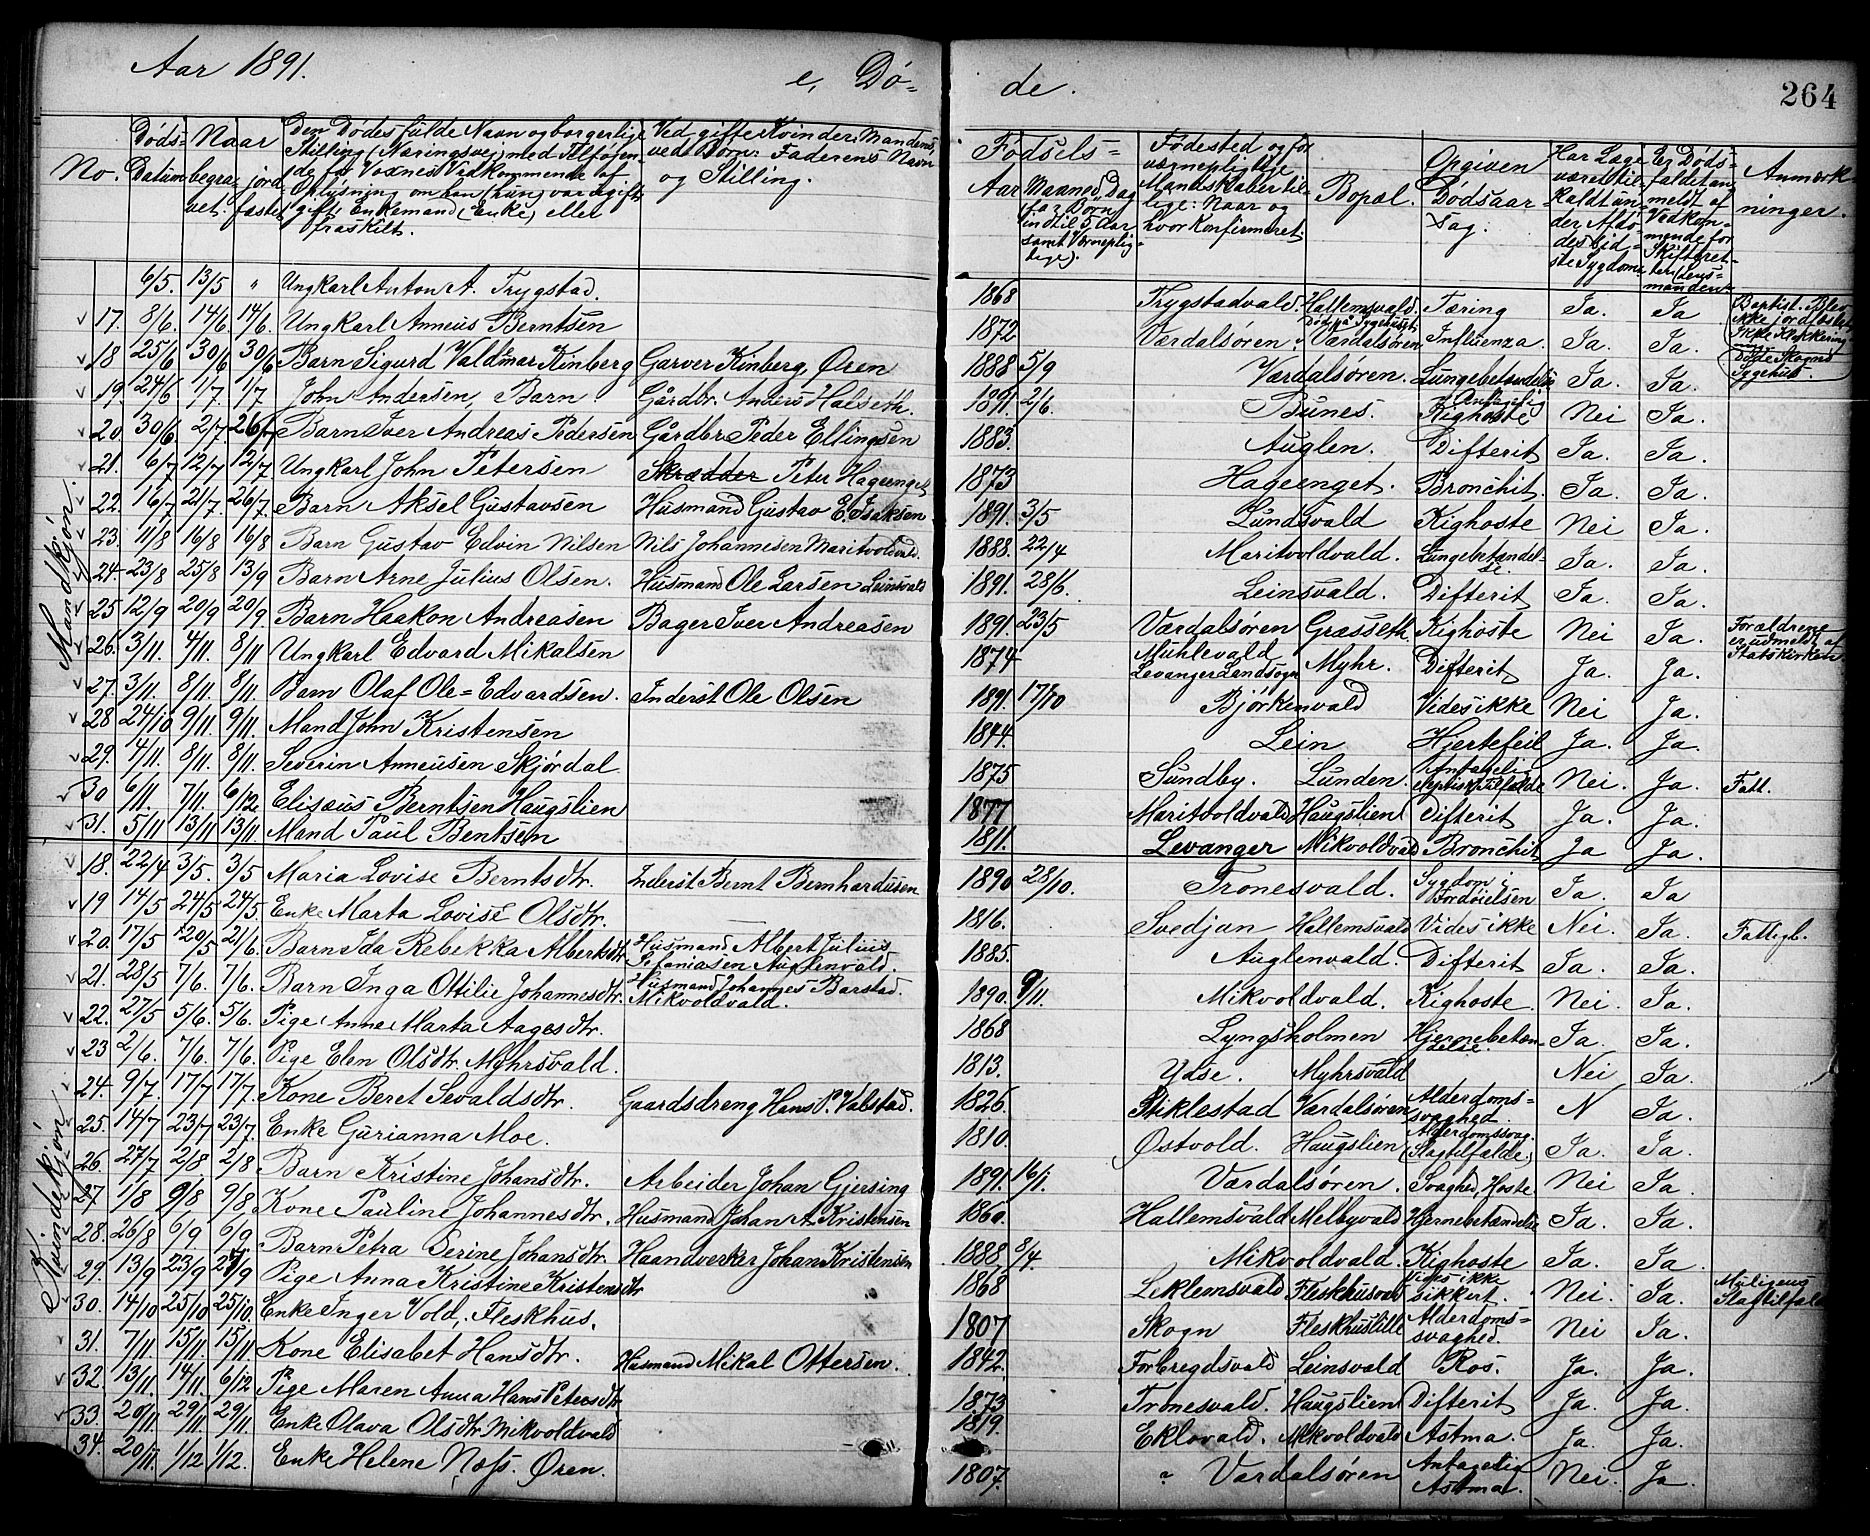 Aar 1891.
e, Dø-
de.
264
No.
Døds-Datum
Naar
begravet.
jordfæstet
Den Dødes fulde Navn og borgerlige Stilling (Næringsvei) med Tilføien- de for Voxnes Vedkommende af Oplysning om han (hun) var ugift gift, Enkemand (Enke) eller fraskilt.
Ved gifte Kvinder: Mandens, ved Børn: Faderens Navn og Stilling.
Fødsels-
Aar
Maaned, Dag
Fødested og for værnepligtige Mandskaber til- lige: Naar og hvor Konfirmeret.
Bopæl.
Opgiven Dødsaarsag.
Har Læge været til- kaldt un- der Afdø- des sid- ste Sygdom
Er Døds- faldet an- meldt af Vedkom- mende for Skifteret- ten (Lens- manden)
Anmærk- ninger.
Mandkjøn.
6/5. 13/5 " Ungkarl Anton A. Trygstad. 1868 Trygstadvald. Hallemsvald. Tæring Ja. Ja Baptist. Blev ikke jordfæstet
17. 8/6. 14/6. 14/6. Ungkarl Anneus Berntsen 1872 Værdalsøren Værdalsøren Influenza. Ja. Ja.
18 25/6 30/6 30/6 Barn Sigurd Valdmar Kinberg Garver Kinberg, Øren 1888 5/9 Værdalsøren. Lungebetændelse Ja. Ja. Døde Skogns Sygehus.
19 24/6 1/7 1/7 John Andersen, Barn Gårdbr. Anders Halseth. 1891. 2/6. Bunes. Antagelig Kighoste Nei Ja.
20. 30/6 2/7 26/7 Barn Iver Andreas Pedersen Gårdbr Peder Ellingsen 1883. Auglen. Difterit Ja. Ja.
21. 6/7 12/7 12/7. Ungkarl John Petersen Skrædder Peter Hageenget 1873 Hageenget. Bronchit. Ja. Ja.
22. 16/7 21/7 26/7. Barn Aksel Gustavsen Husmand Gustav E. Isaksen 1891. 3/5 Lundsvald Kighoste Nei Ja.
23. 11/8 16/8 16/8 Barn Gustav Edvin Nilsen Nils Johannesen Maritvoldvald. 1888. 22/4 Maritvoldvald. Lungebetændelse Ja. Ja.
24. 23/8 25/8 13/9 Barn Arne Julius Olsen. Husmand Ole Larsen Leinsvald 1891. 28/6. Leinsvald. Difterit Ja. Ja.
25 12/9 20/9 20/9 Barn Haakon Andreasen Bager Iver Andreasen 1891. 23/5 Værdalsøren Græsseth. Kighoste Nei Ja. Forældrene er udmeldt af Statskirken
26. 3/11. 4/11. 8/11 Ungkarl Edvard Mikalsen 1874 Muhlevald Levanger Landsogn Myhr. Difterit Ja. Ja.
27. 3/11. 8/11. 8/11. Barn Olaf Ole-Edvardsen. Inderst Ole Olsen 1891. 17/10 Bjørkenvald Vides ikke Nei Ja.
28 24/10 9/11. 9/11. Mand John Kristensen Lein Hjertefeil Ja. Ja.
29. 4/11. 8/11. 8/11. Severin Anneusen Skjørdal 1875 Sundby. Lunden. Antagelig Nei. Ja. Fatt.
30 6/11. 7/11. 6/12. Elisæus Berntsen Haugslien 1877 Maritvoldvald Haugslien Difterit Ja. Ja.
31. 5/11 13/11 13/11. Mand Paul Bentsen 1811. Levanger Mikvoldvald Bronchit Ja Ja.
Kvindekjøn.
18. 22/4 3/5. 3/5 Maria Lovise Berntsdtr. Inderst Bernt Bernhardusen 1890 28/10. Tronesvald. Sygdom i Fordøielsen Ja. Ja
19 14/5 24/5 24/5. Enke Marta Lovise Olsdtr. 1816. Svedjan Hallemsvald Vides ikke Nei. Ja. Fattigl.
20. 17/5 20/5 21/6. Barn Ida Rebekka Albertsdtr. Husmand Albert Julius Sefaniasen Auglenvald. 1885. Auglenvald. Difterit Ja. Ja.
21. 28/5 7/6. 7/6. Barn Inga Ottilie Johannesdtr. Husmand Johannes Barstad. Mikvoldvald. 1890. 9/11. Mikvoldvald. Kighoste. Nei. Ja.
22. 27/5 5/6. 5/6. Pige Anne Marta Aagesdtr. 1868 Lyngsholmen Hjernebetændelse. Ja. Ja.
23 2/6. 7/6. 7/6. Pige Elen Olsdtr. Myhrsvald. 1813. Ydse. Myhrsvald Nei Ja.
24. 9/7. 17/7 17/7. Kone Beret Sevaldsdtr. Gaardsdreng Hans P. Valstad. 1826. Stiklestad Værdalsøren Alderdoms- svaghed N Ja.
25. 14/7 23/7 23/7. Enke Gurianna Moe. 1810. Østvold. Haugslien Alderdomssvag. (Slagtilfælde) Ja. Ja.
26. 27/7 2/8 2/8 Barn Kristine Johansdtr. Arbeider Johan Gjersing 1891. 16/1. Værdalsøren. Svaghed, Hoste Nei Ja.
27 1/8 9/8 9/8 Kone Pauline Johannesdtr. Husmand Johan A. Kristensen 1860. Hallemsvald Melbyvald Hjernebetændelse Ja. Ja.
28. 26/8 6/9 6/9. Barn Petra Serine Johansdtr. Haandverker Johan Kristensen 1888, 8/4. Mikvoldvald. Kighoste Ja. Ja.
29. 13/9 23/9 Pige Anna Kristine Kristensdtr 1868 Leklemsvald Fleskhusvald Vides ikke sikkert. Nei. Ja. Muligens Slagtilfælde
30. 14/10 25/10 25/10. Enke Inger Vold, Fleskhus. 1807 Skogn Fleskhuslille Alderdoms- svaghed. Nei Ja.
31. 7/11 15/11 15/11 Kone Elisabet Hansdtr. Husmand Mikal Ottersen. 1842. Forbregdsvald Leinsvald Ros. Ja. Ja.
32. 13/11 14/11. 6/12 Pige Maren Anna Hans Petersdtr 1873 Tronesvald. Haugslien Difterit Ja. Ja.
33. 20/11 29/11. 29/11 Enke Olava Olsdtr Mikvoldvald 1819. Eklovald. Mikvoldvald Astma. Ja. Ja.
34. 20/11. 1/12 1/12. Enke Helene Næss. Øren. 1807. " Værdalsøren Antagelig Astma. Nei. Ja